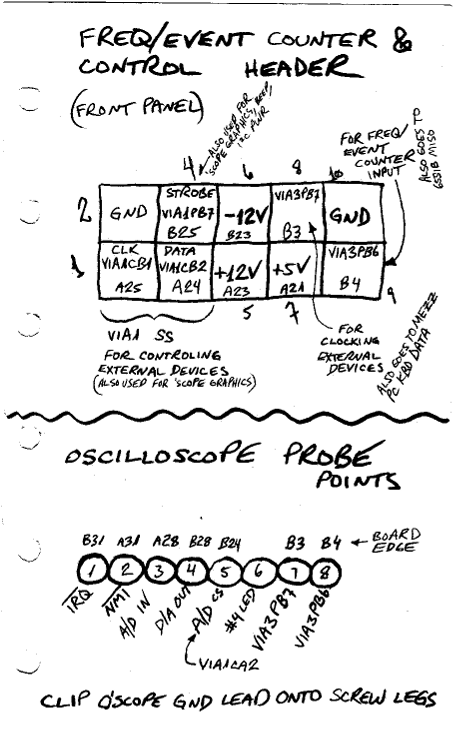 FREQ/EVENT COUNTER &
CONTROL HEADER
(FRONT PANEL)
ALSO USED FOR
'SCOPE GRAPHICS, BEEP,
I²C PWR
4 6 8 10
FOR FREQ/
EVENT
COUNTER
INPUT
ALSO GOES TO
65SIB MISO
2
GND
STROBE
VIA1PB7
B25
-12V
B23
VIA3PB7
B3
GND
1
CLK
VIA1CB1
A25
DATA
VIA1CB2
A24
+12V
A23
+5V
A21
VIA3PB6
B4
9
5 7
VIA1 SS
FOR CONTROLING
EXTERNAL DEVICES
(ALSO USED FOR 'SCOPE GRAPHICS)
FOR
CLOCKING
EXTERNAL
DEVICES
ALSO GOES TO MEZZ
PC KBD DATA
OSCILLOSCOPE PROBE
POINTS
B31 A31 A28 B28 B24 B3 B4 ← BOARD
EDGE
1 2 3 4 5 6 7 8
IRQ
NMI
A/D IN
D/A OUT
A/D CS
#4 LED
VIA3PB7
VIA3PB6
VIA1CA2
CLIP O'SCOPE GND LEAD ONTO SCREW LEGS